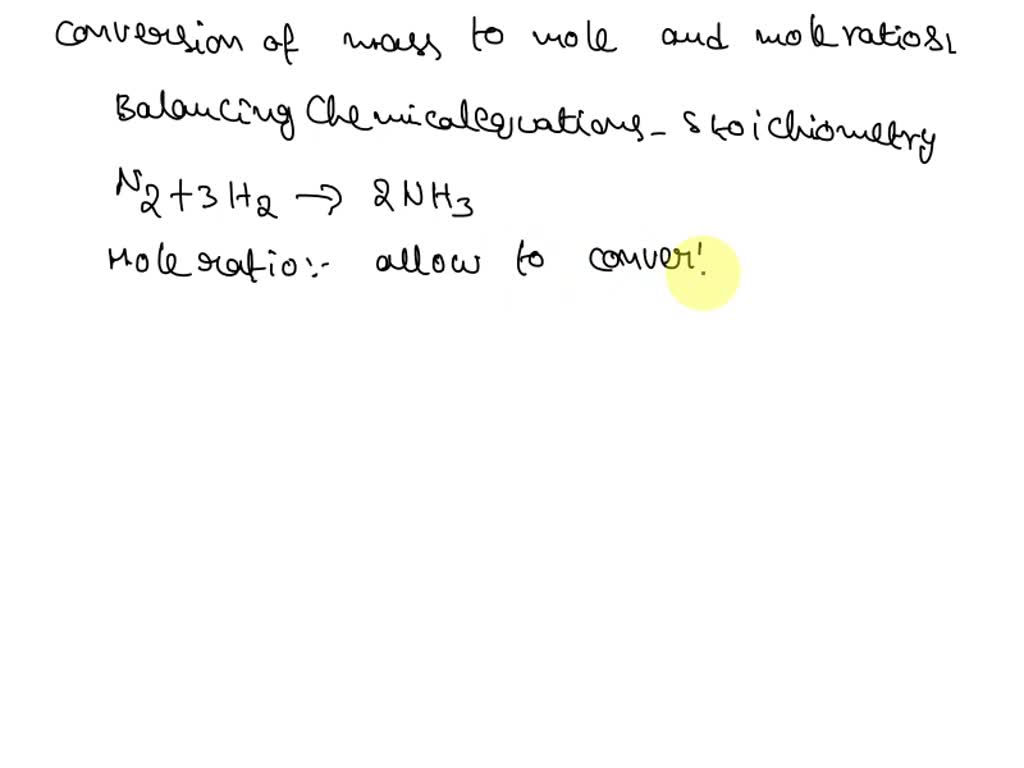 conversion of mass to mole and mole ratios,
Balancing Chemical equations - Stoichiometry
N2 + 3H2 → 2NH3
Mole ratio:- allow to conver